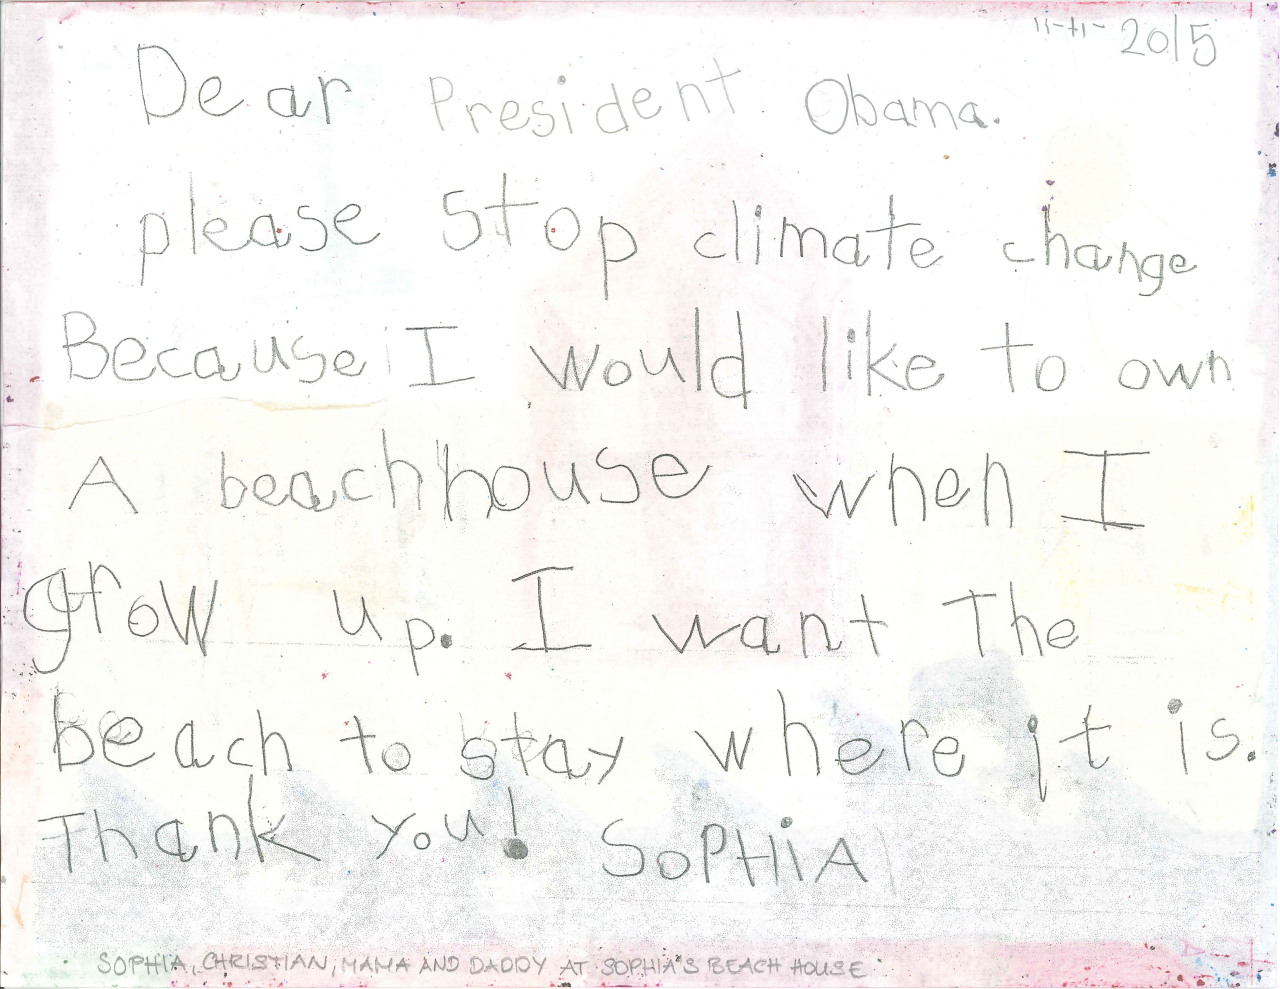 11-11-2015
Dear President Obama.
please stop climate change
Because I would like to own
A beachhouse when I
grow up. I want The
beach to stay where it is.
Thank you! SOPHiA
SOPHIA, CHRISTIAN, MAMA AND DADDY AT SOPHIA'S BEACH HOUSE